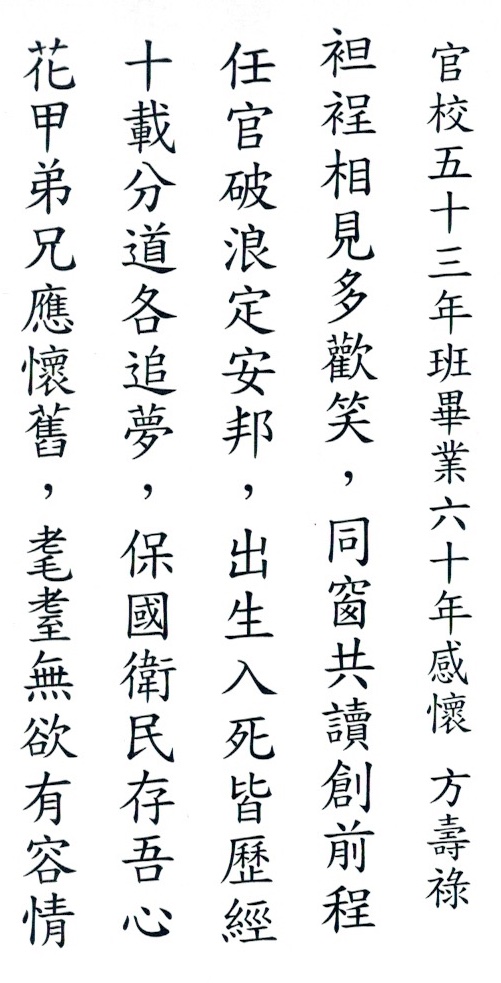 官校五十三年班畢業六十年感懷 方壽祿
袒裎相見多歡笑，同窗共讀創前程
任官破浪定安邦，出生入死皆歷經
十載分道各追夢，保國衛民存吾心
花甲弟兄應懷舊，耄耋無欲有容情